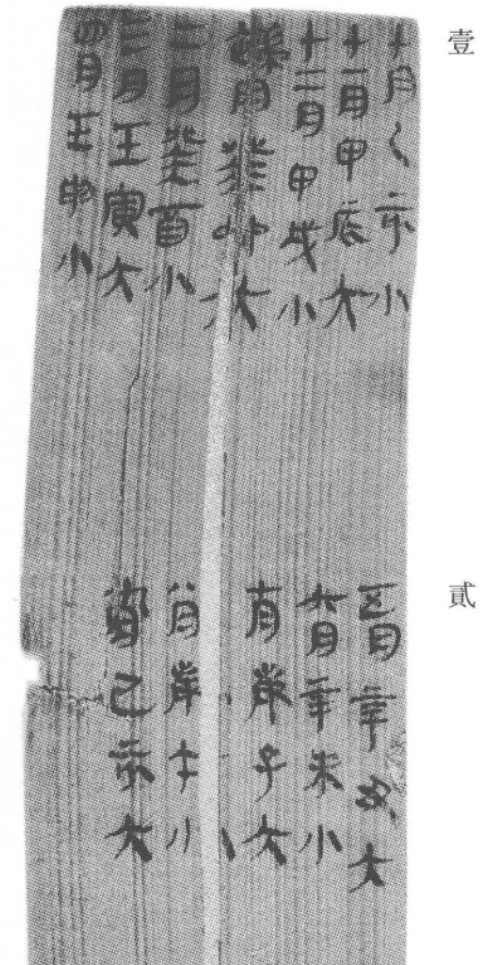 壹
十月乙亥小
十一月甲辰大
十二月甲戌小
端月癸卯大
二月癸酉小
三月壬寅大
四月壬申小
貳
五月辛丑大
六月辛未小
七月庚子大
八月庚午小
九月己亥大